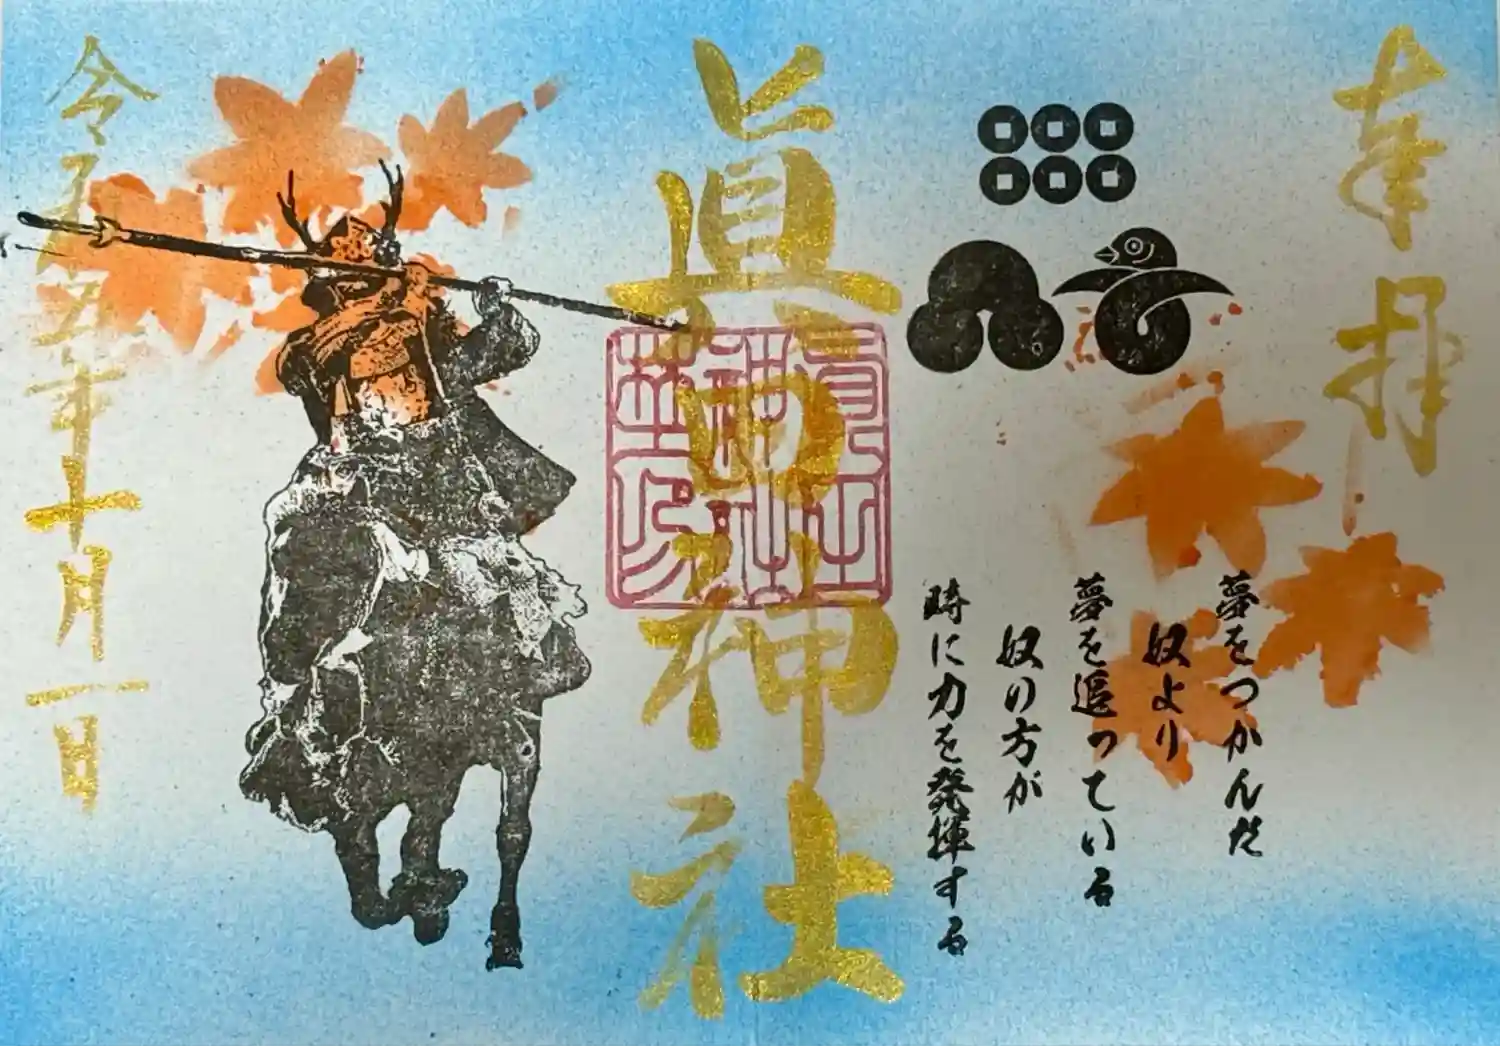 奉拝
夢をつかんだ
奴より
夢を追っている
奴の方が
時に力を発揮する
眞田神社
令和五年十月一日